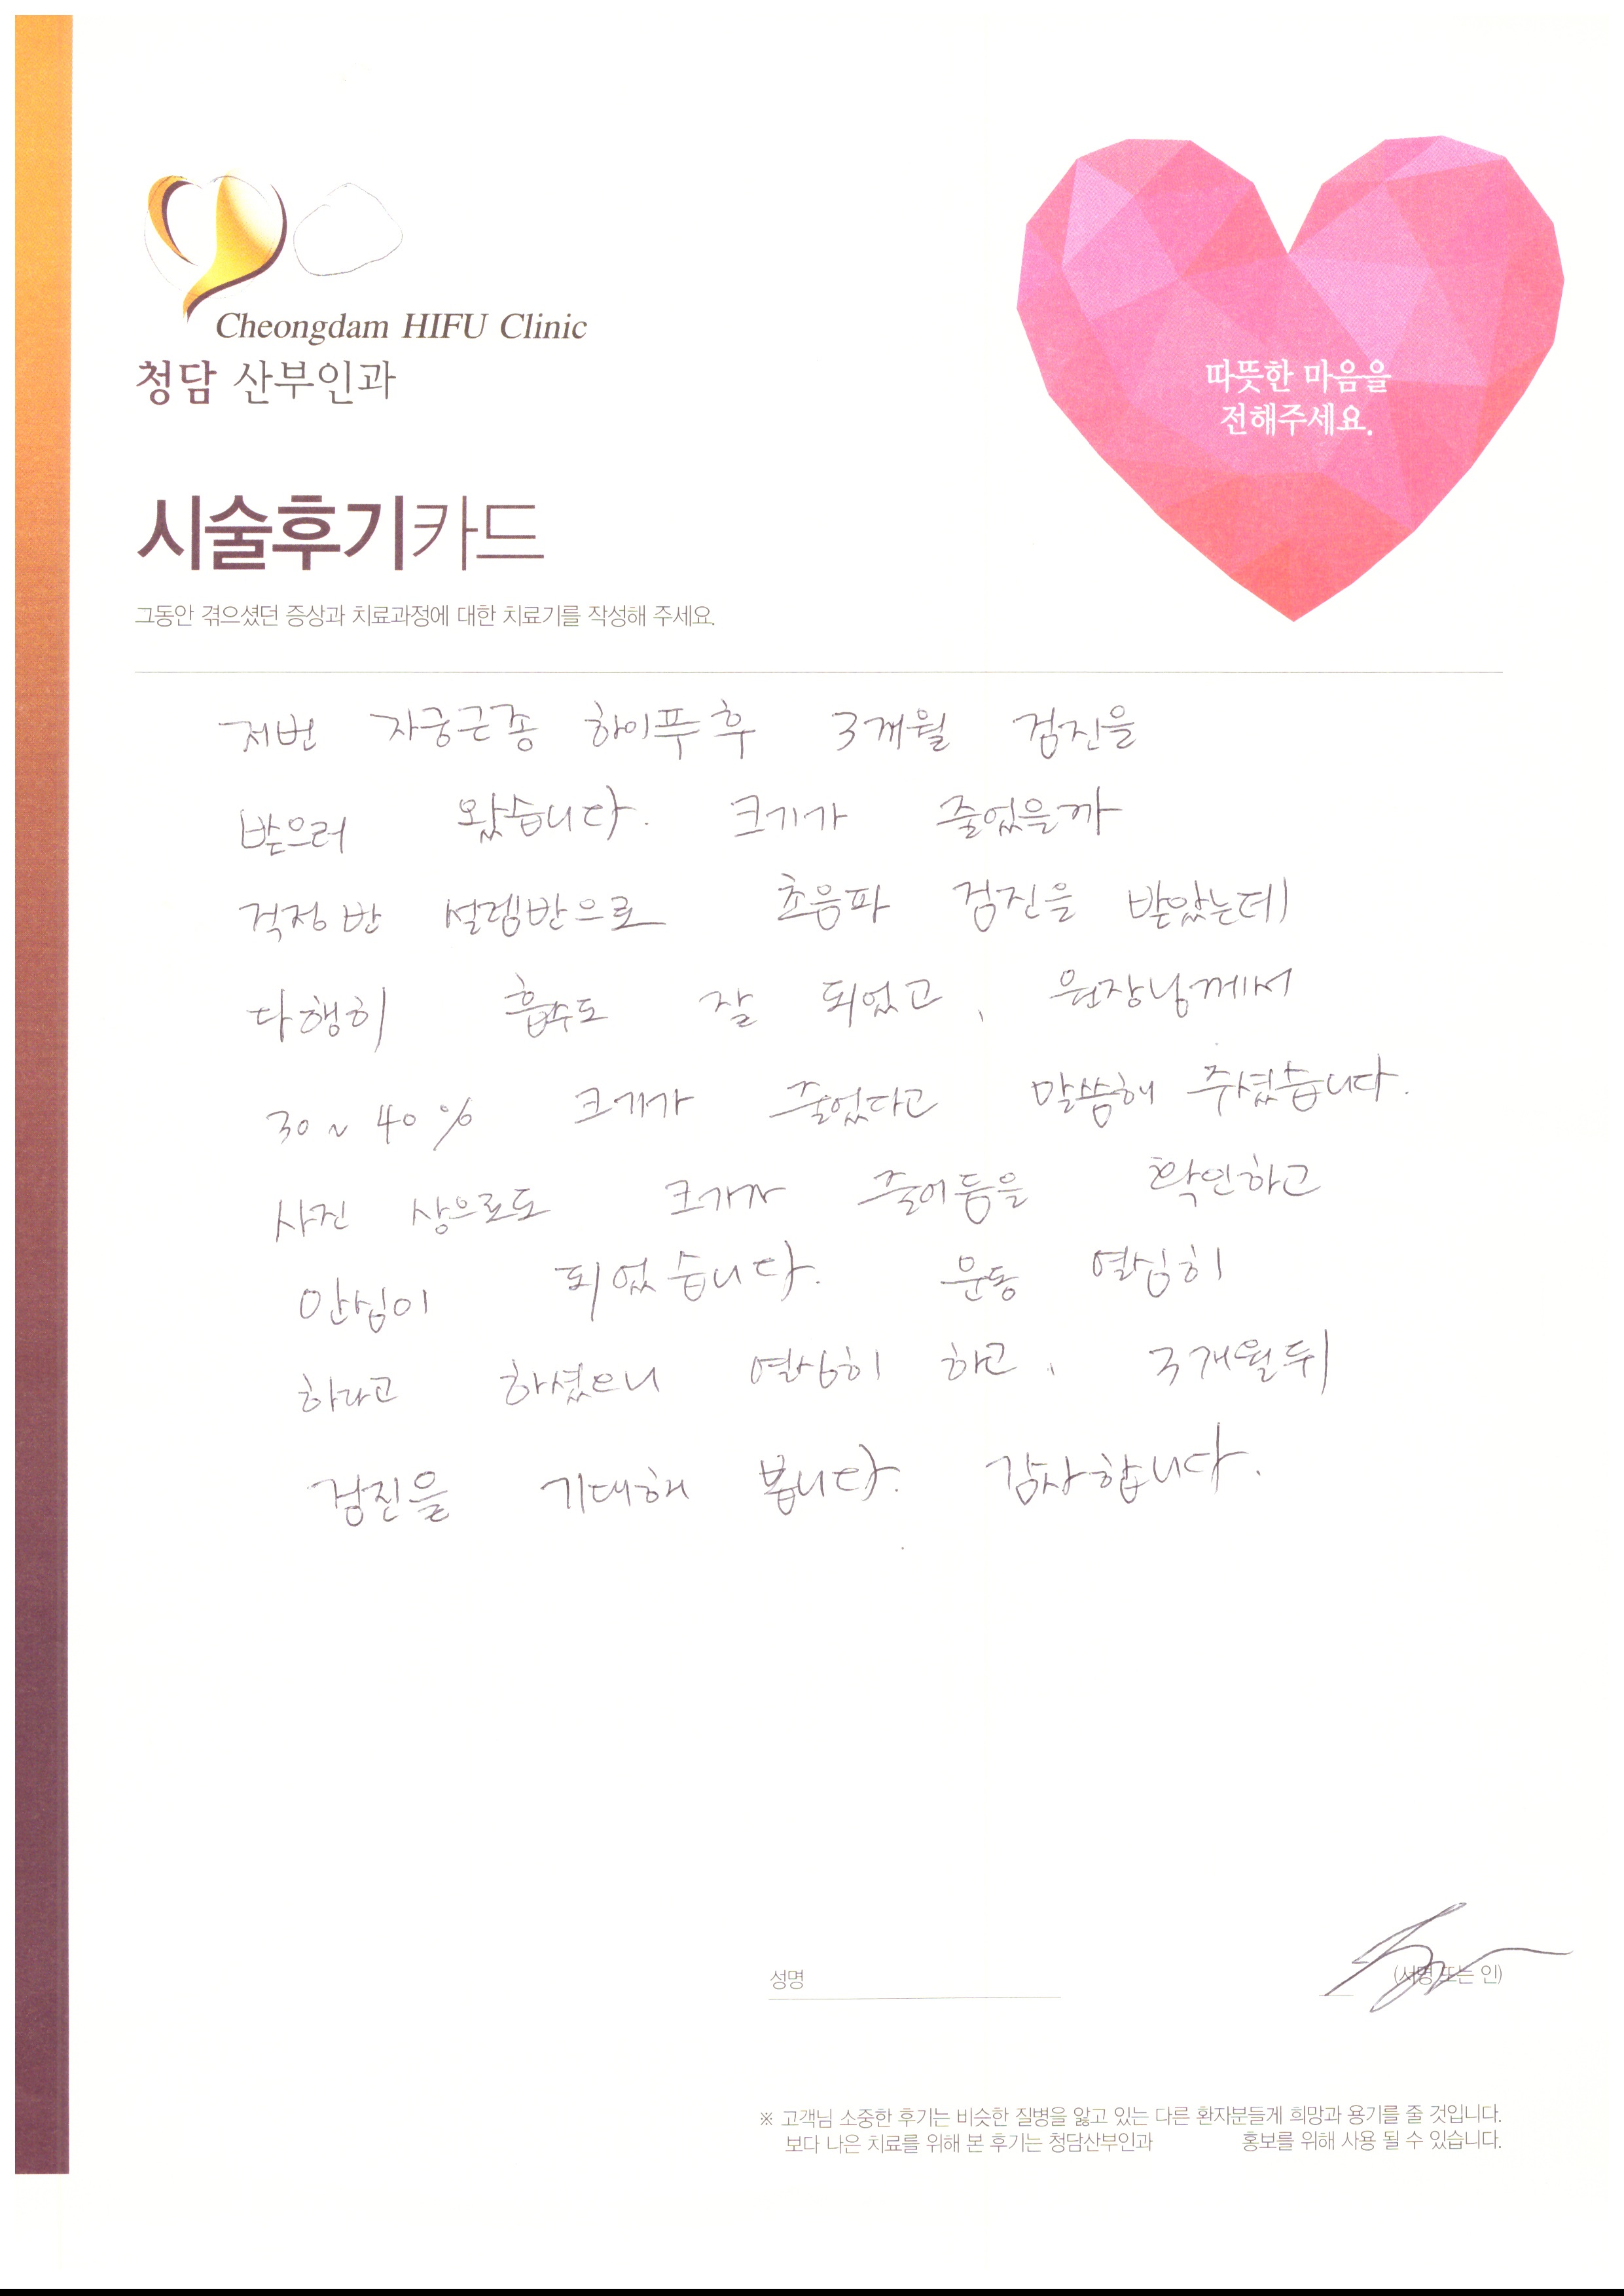 Cheongdam HIFU Clinic
청담 산부인과
따뜻한 마음을
전해주세요.
시술후기카드
그동안 겪으셨던 증상과 치료과정에 대한 치료기를 작성해 주세요.
저번 자궁근종 하이푸 후 3개월 검진을
받으러 왔습니다. 크기가 줄었을까
걱정 반 설렘반으로 초음파 검진을 받았는데
다행히 흡수도 잘 되었고, 원장님께서
30~40% 크기가 줄었다고 말씀해 주셨습니다.
사진 상으로도 크기가 줄어듬을 확인하고
안심이 되었습니다. 운동 열심히
하라고 하셨으니 열심히 하고, 3개월뒤
검진을 기대해 봅니다. 감사합니다.
성명
(서명 또는 인)
※ 고객님 소중한 후기는 비슷한 질병을 앓고 있는 다른 환자분들게 희망과 용기를 줄 것입니다.
보다 나은 치료를 위해 본 후기는 청담산부인과 홍보를 위해 사용 될 수 있습니다.